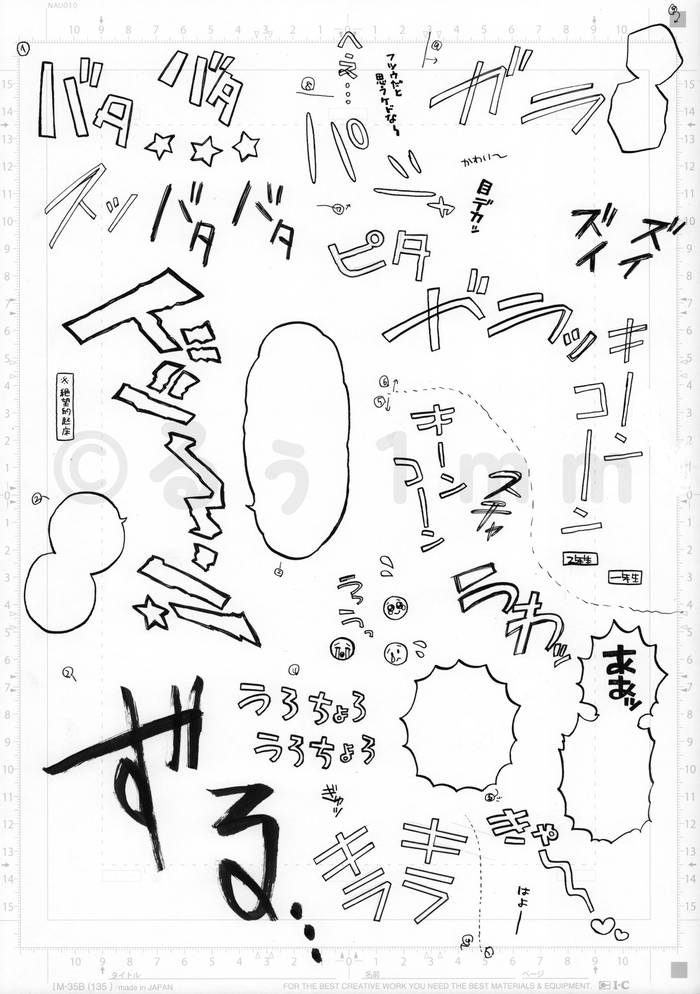 NAU010
へえ…
フツウだと
思うケドな〜
バタ バタ
ガラ
パシャ
かわい〜
目デカッ
ズッ
バタ バタ
ピタ
ズイ ズイ
ガラッ
キーン
コーン
※絶望的起床
キーン
コーン
スチャ
2年生
一年生
©るぅ1mm
うっうっ
うわッ
ああッ
うろちょろ
うろちょろ
ずる…
ぎゅッ
キラ キラ
きゃー
はよー
タイトル
名前
ページ
IM-35B (135) made in JAPAN
FOR THE BEST CREATIVE WORK YOU NEED THE BEST MATERIALS & EQUIPMENT.
I-C